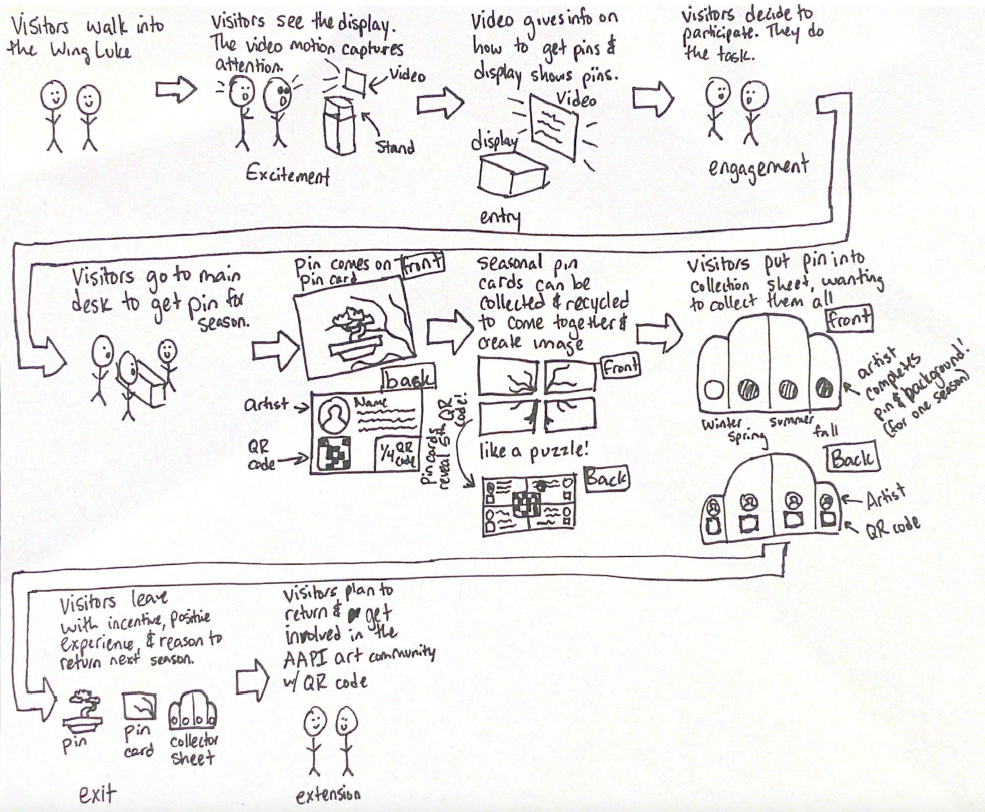 Visitors walk into
the Wing Luke
Visitors see the display.
The video motion captures
attention.
Video
Stand
Excitement
Video gives info on
how to get pins &
display shows pins.
Video
display
entry
Visitors decide to
participate. They do
the task.
engagement
Visitors go to main
desk to get pin for
season.
Pin comes on
pin card
front
back
artist
Name
QR
code
1/4 QR
code
Pin cards
reveal 5th QR
code!
Seasonal pin
cards can be
collected & recycled
to come together &
create image
Front
like a puzzle!
Back
Visitors put pin into
collection sheet, wanting
to collect them all
front
artist
completes
pin & background!
(for one season)
Winter
Spring
Summer
fall
Back
Artist
QR code
Visitors leave
with incentive, positive
experience, & reason to
return next season.
pin
pin
card
collector
sheet
exit
Visitors plan to
return & get
involved in the
AAPI art community
w/ QR code
extension